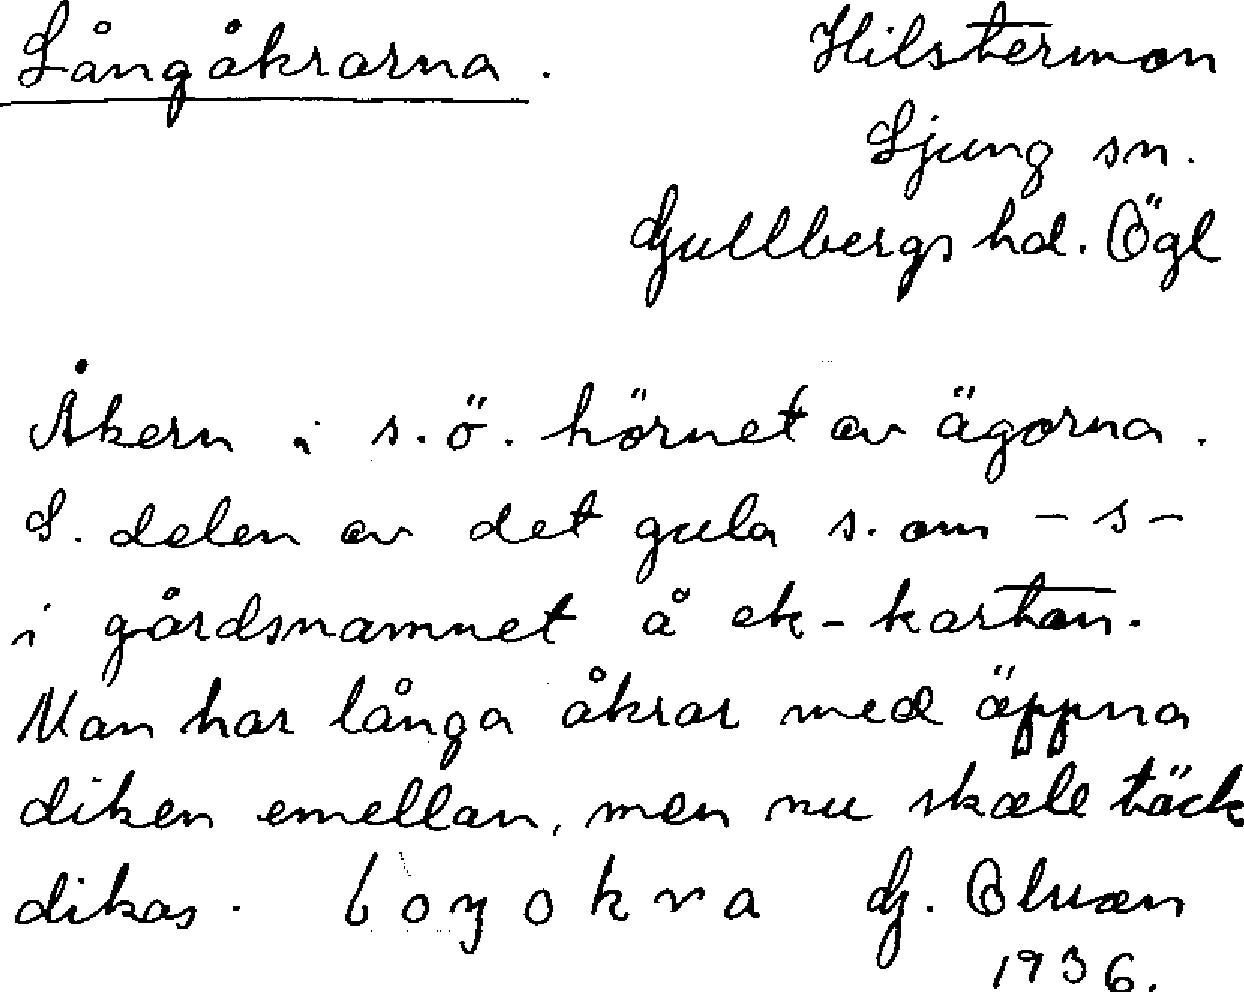 Långåkrarna. Hilsterman
Ljung sn.
Gullbergs hd. Ögl
Åkern i s.ö. hörnet av ägorna.
S. delen av det gula s. om - s -
i gårdsnamnet å ek-kartan.
Man har långa åkrar med äppna
diken emellan, men nu skall täck
dikas. G.
1936.